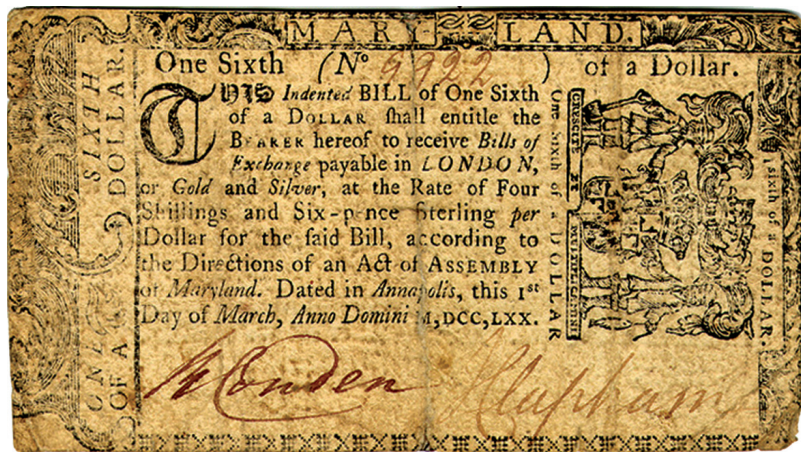 MARYLAND.
One Sixth (No 9922) of a Dollar.
THIS Indented BILL of One Sixth
of a DOLLAR ſhall entitle the
BEARER hereof to receive Bills of
Exchange payable in LONDON,
or Gold and Silver, at the Rate of Four
Shillings and Six-pence Sterling per
Dollar for the ſaid Bill, according to
the Directions of an Act of ASSEMBLY
of Maryland. Dated in Annapolis, this 1st
Day of March, Anno Domini M,DCC,LXX.
W Couden
J Clapham
ONE SIXTH
OF A DOLLAR.
One Sixth of a DOLLAR
CRESCITE ET MULTIPLICAMINI
1 ſixth of a DOLLAR.